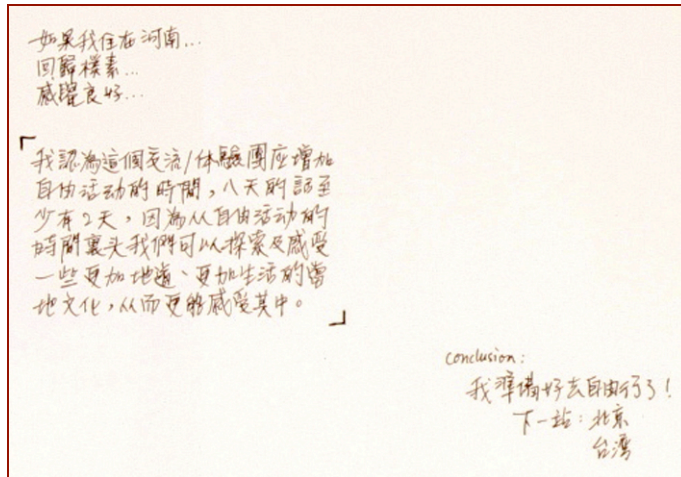 如果我住在河南...
回歸樸素...
感覺良好...
「我認為這個交流/体驗團应增加
自由活动的時間，八天的話至
少有2天，因為从自由活动的
時間裏头我們可以探索及感受
一些更加地道、更加生活的當
地文化，从而更能感受其中。」
conclusion:
我準備好去自由行了！
下一站：北京
台湾